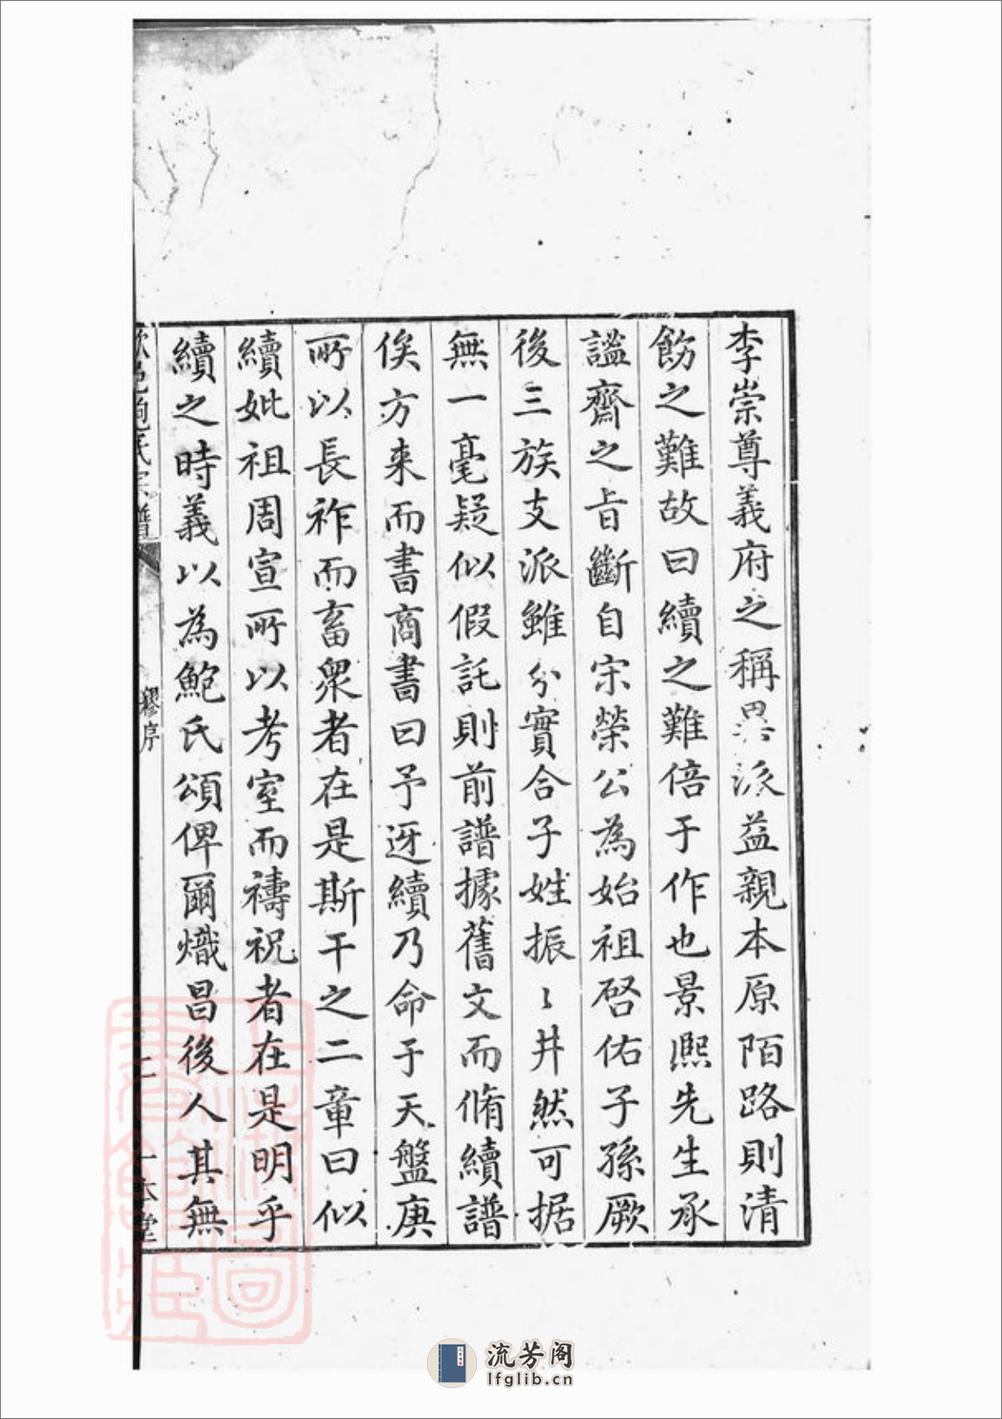 李崇尊義府之稱異派益親本原陌路則清
飭之難故曰續之難倍于作也景熈先生承
謐齋之㫖斷自宋榮公為始祖啓佑子孫厥
後三族支派雖分實合子姓振〻井然可据
無一毫疑似假託則前譜據舊文而脩續譜
俟方来而書商書曰予迓續乃命于天盤庚
所以長祚而畜衆者在是斯干之二章曰似
續妣祖周宣所以考室而禱祝者在是明乎
續之時義以為鮑氏頌俾爾熾昌後人其無
歙邑鮑氏宗譜
繆序
二
本堂
流芳阁
lfglib.cn